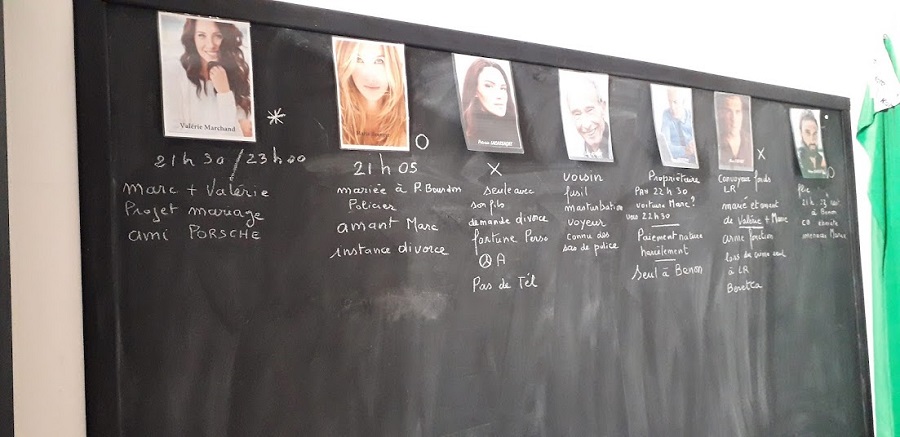 Valérie Marchand
*
21h30/23h00
Marc + Valérie
Projet mariage
ami PORSCHE
O
21h05
mariée à P. Bourdon
Policier
amant Marc
instance divorce
X
seule avec
son fils
demande divorce
fortune Perso
A
Pas de Tél
voisin
fusil
masturbation
voyeur
connu des
sas de police
Propriétaire
22h30
voiture Marc?
22h30
Paiement nature
harcèlement
Seul à Benon
X
Convoyeur fonds
LR
marié et amant
de Valérie + Marc
arme fonction
à LR
Beretta
O
flic
21h
à Benon
menaces